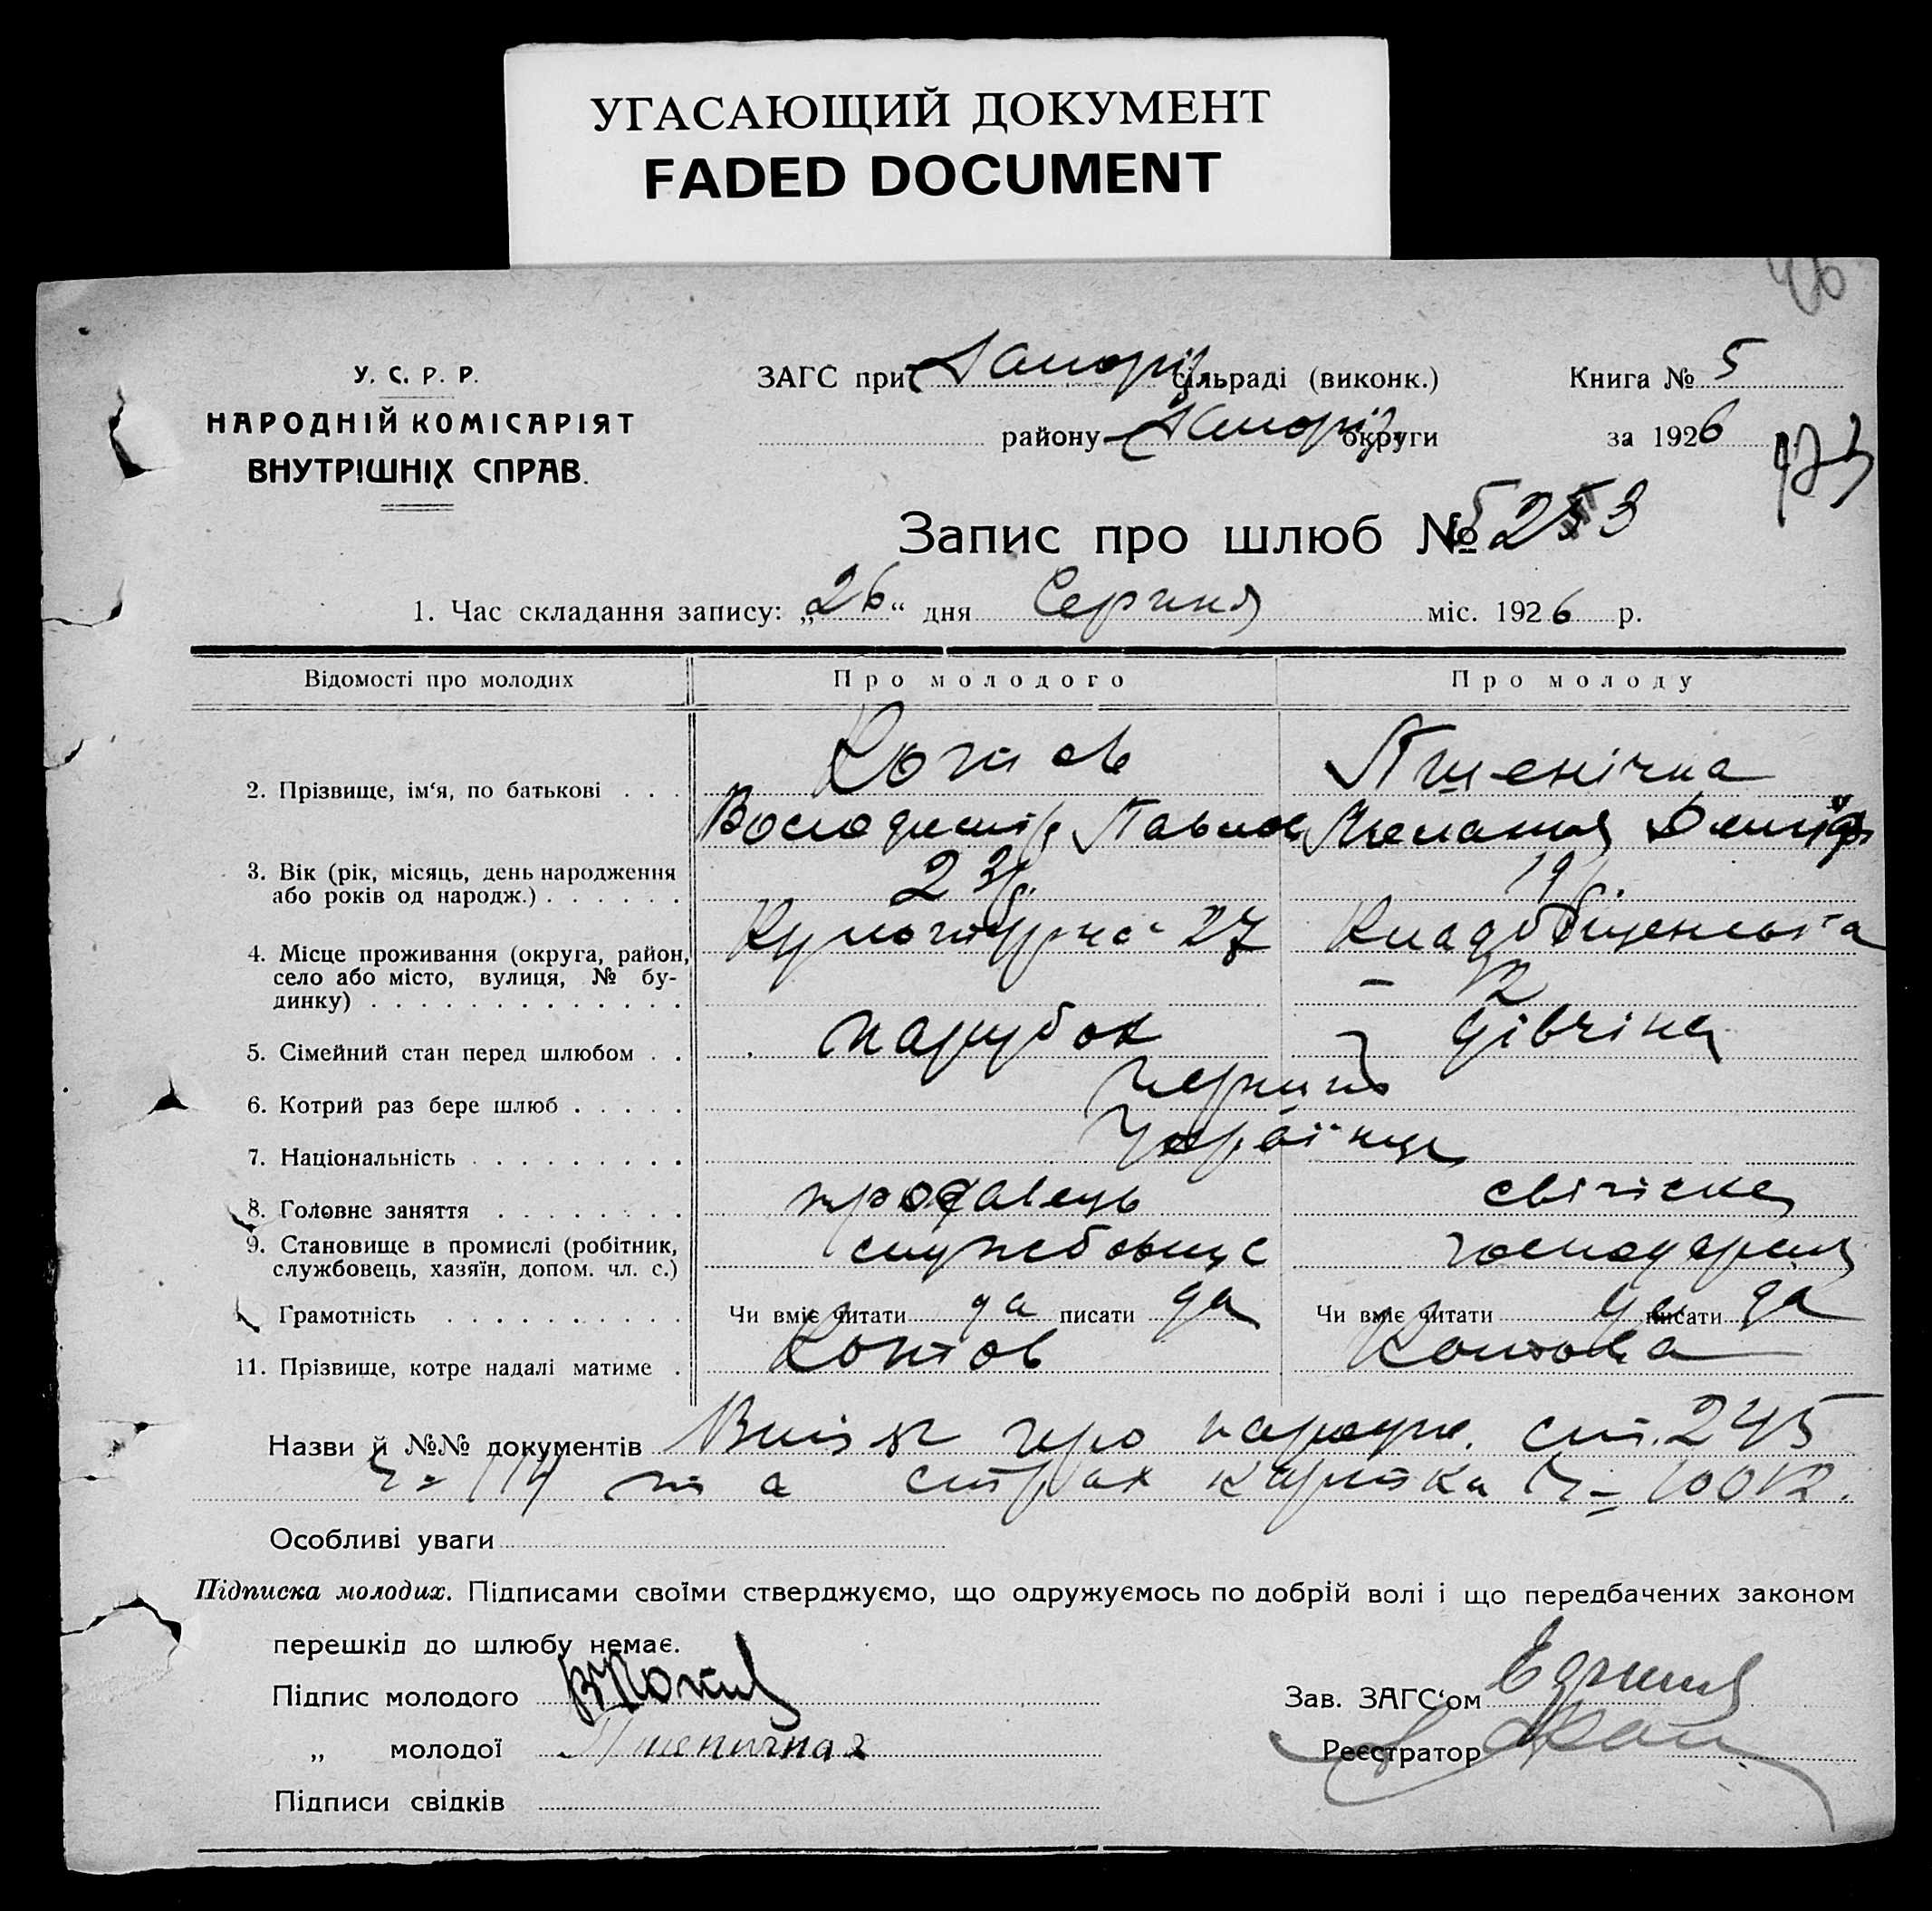 УГАСАЮЩИЙ ДОКУМЕНТ
FADED DOCUMENT
46
У. С. Р. Р.
НАРОДНІЙ КОМІСАРІЯТ
ВНУТРІШНІХ СПРАВ.
ЗАГС при Запоріз. сільраді (виконк.)
Книга № 5
району Запоріз. округи
за 1926
Запис про шлюб № 5253
1. Час складання запису: „26“ дня Серпня міс. 1926 р.
Відомості про молодих
Про молодого
Про молоду
2. Прізвище, ім‘я, по батькові . . .
Котов
Володимір Павлов
Пшенічна
Меланія Демид
3. Вік (рік, місяць, день народження
або років од народж.) . . . . . .
23 р.
19 р.
4. Місце проживання (округа, район,
село або місто, вулиця, № бу-
динку) . . . . . . . . . . . . .
27
12
5. Сімейний стан перед шлюбом . .
парубок
дівчіна
6. Котрий раз бере шлюб . . . . .
7. Національність . . . . . . . . .
Українці
8. Головне заняття . . . . . . . .
продавець
9. Становище в промислі (робітник,
службовець, хазяїн, допом. чл. с.)
службовец
господарка
Грамотність . . . . . . . . . .
Чи вміє читати да писати да
Чи вміє читати да писати да
11. Прізвище, котре надалі матиме .
Котов
Котова
Назви й №№ документів Випіс про народж. ст. 245
та страх картка
Особливі уваги
Підписка молодих. Підписами своїми стверджуємо, що одружуємось по добрій волі і що передбачених законом
перешкід до шлюбу немає.
Підпис молодого ВКотов
„ молодої Пшеничная
Підписи свідків
Зав. ЗАГС‘ом
Реєстратор